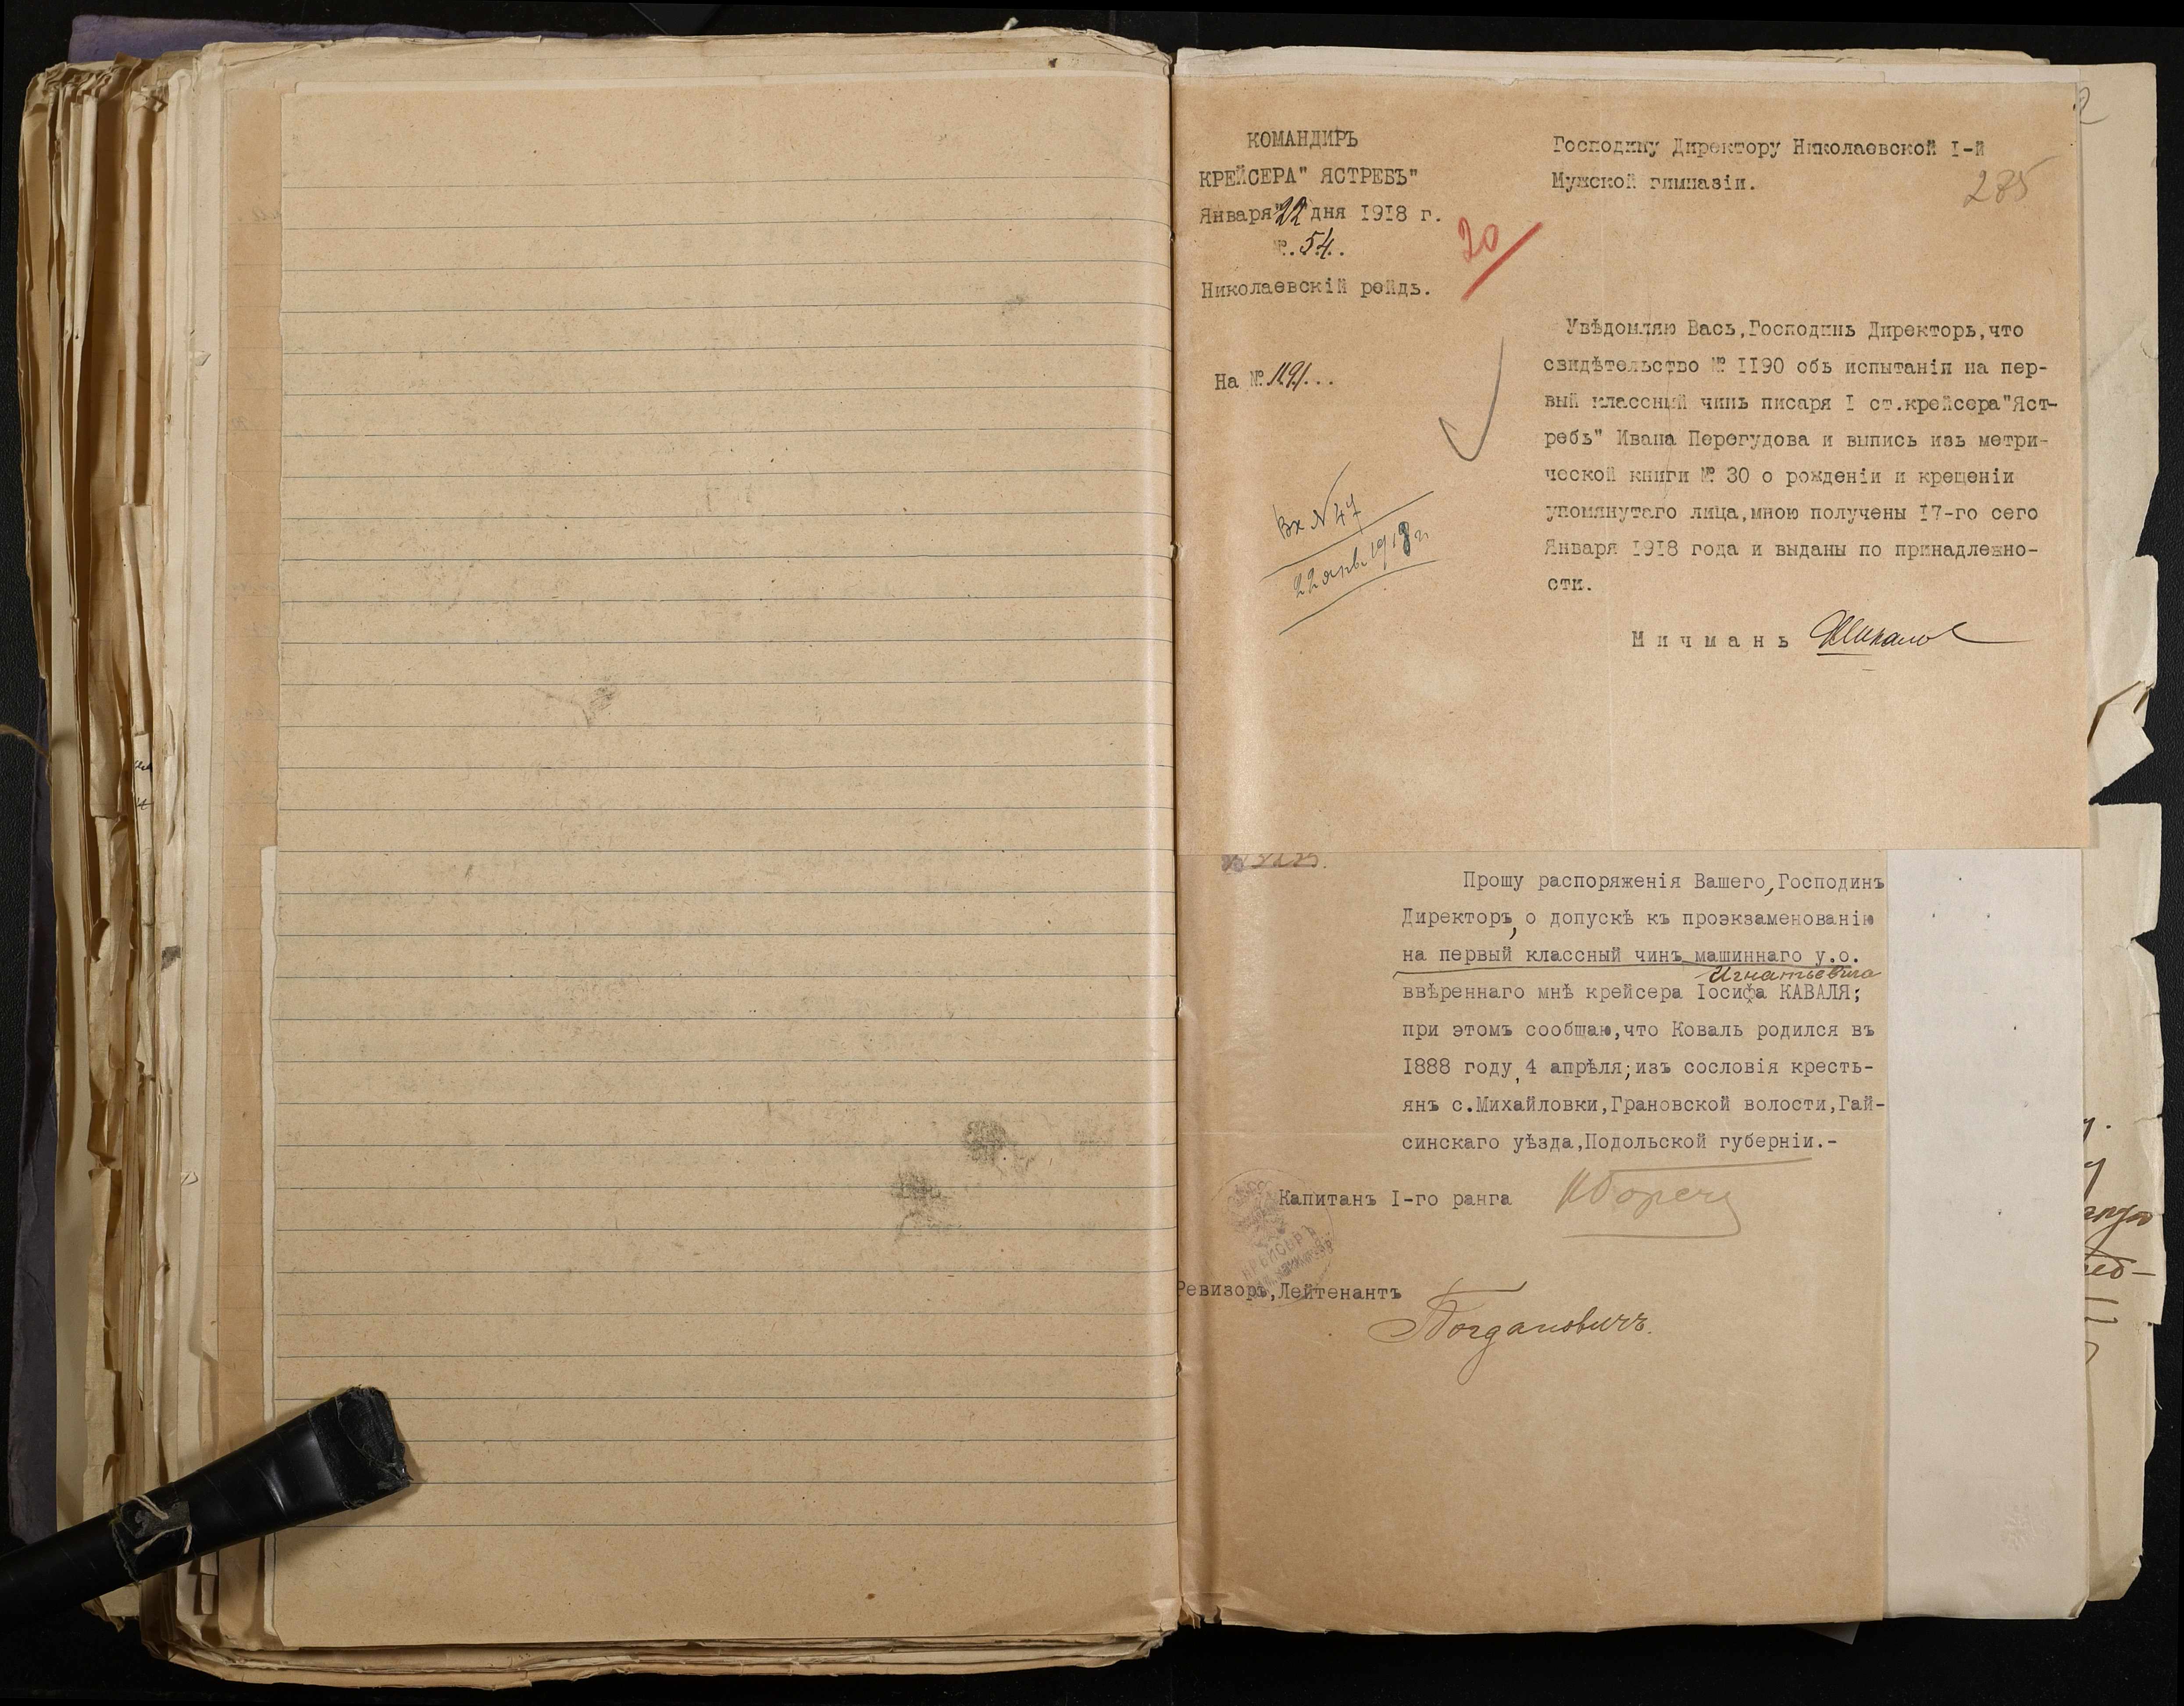 КОМАНДИРЪ
КРЕЙСЕРА" ЯСТРЕБЪ"
Января "22 дня 1918 г.
№. 54.
Николаевскій рейдъ.
На №. 1191...
Господину Директору Николаевской I-й
Мужской гимназіи.
285
20
Увѣдомляю Васъ,Господинъ Директоръ,что
свидѣтельство № 1190 объ испытаніи на пер-
вый классный чинъ писаря I ст.крейсера"Яст-
ребъ" Ивана Перегудова и выпись изъ метри-
ческой книги № 30 о рожденіи и крещеніи
упомянутаго лица,мною получены 17-го сего
Января 1918 года и выданы по принадлежно-
сти.
Вх № 47
22 янв. 1918 г.
Мичманъ
Прошу распоряженія Вашего,Господинъ
Директоръ, о допускѣ къ проэкзаменованію
на первый классный чинъ машиннаго у.о.
Игнатьевича
ввѣреннаго мнѣ крейсера Іосифа КАВАЛЯ;
при этомъ сообщаю,что Коваль родился въ
1888 году, 4 апрѣля;изъ сословія кресть-
янъ с.Михайловки,Грановской волости,Гай-
синскаго уѣзда,Подольской губерніи.-
Капитанъ I-го ранга
Ревизоръ,Лейтенантъ
Богдановичъ.